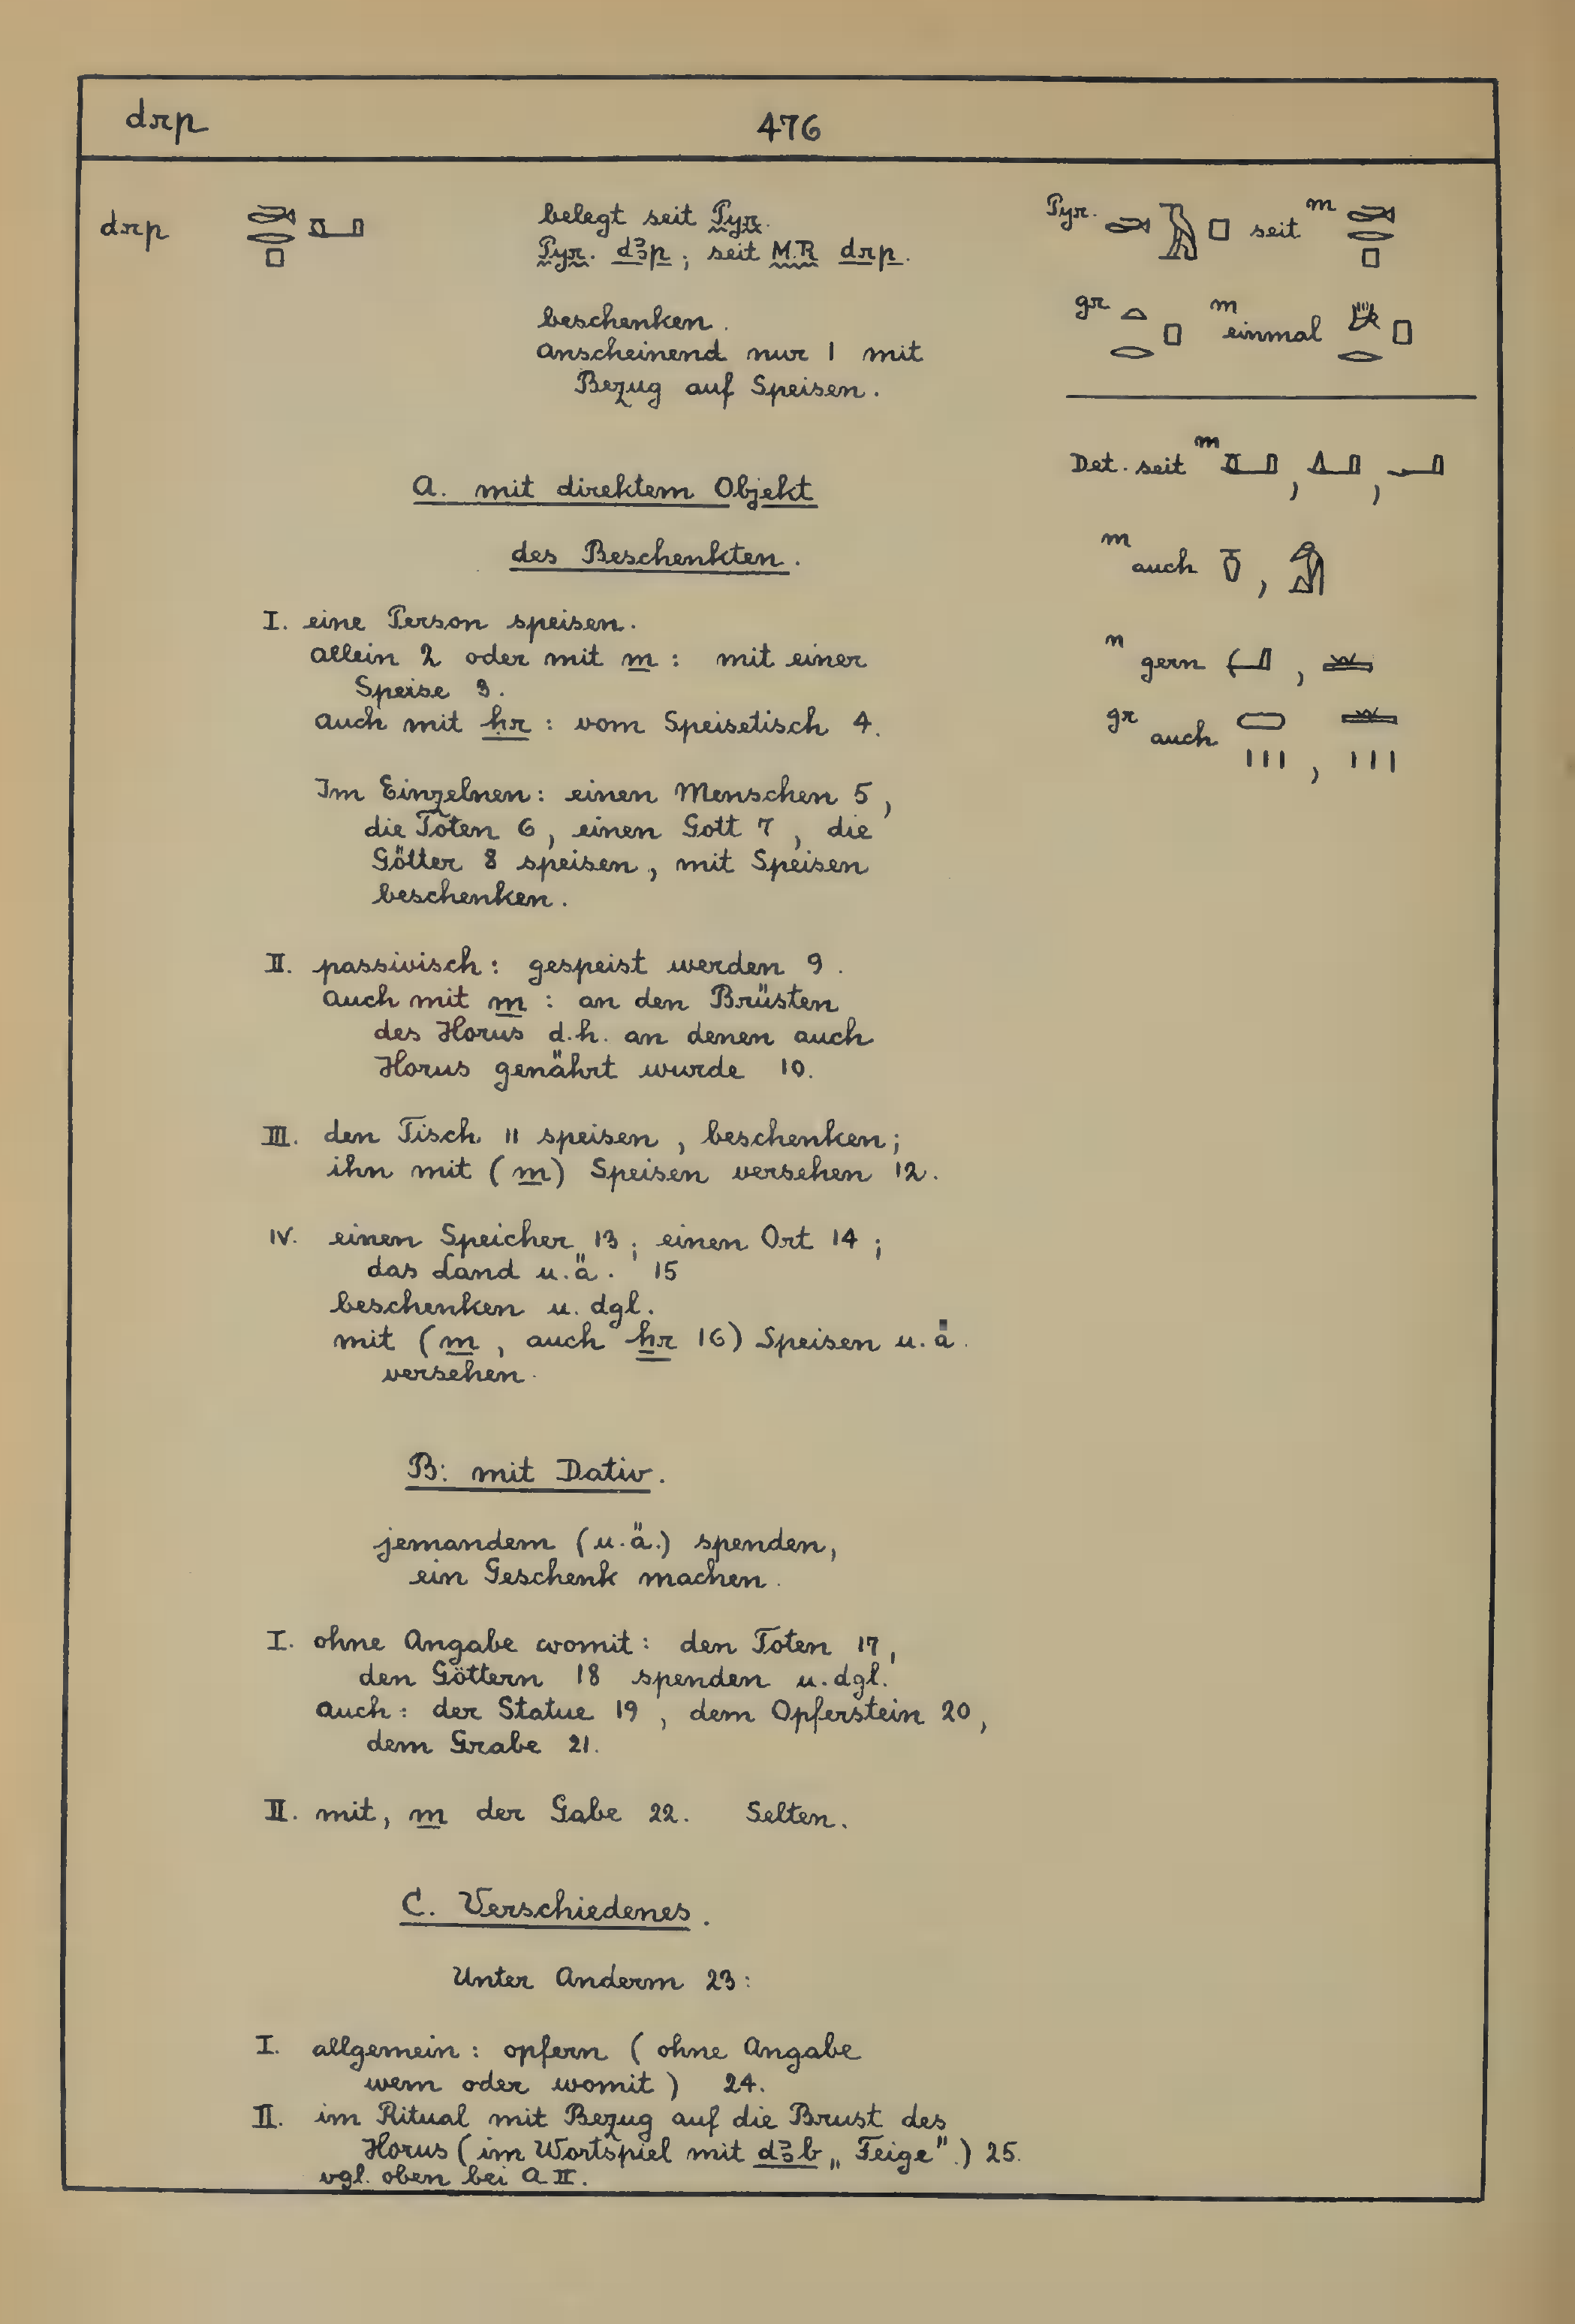 drp 476
drp
belegt seit Pyr.
Pyr. dꜣp; seit M.R drp.
beschenken.
anscheinend nur 1 mit
Bezug auf Speisen.
Pyr. seit m
gr m einmal
Det. seit m , ,
m auch ,
n gern ,
gr auch ,
A. mit direktem Objekt
des Beschenkten.
I. eine Person speisen.
allein 2 oder mit m: mit einer
Speise 3.
auch mit ḥr: vom Speisetisch 4.
Im Einzelnen: einen Menschen 5,
die Toten 6, einen Gott 7, die
Götter 8 speisen, mit Speisen
beschenken.
II. passivisch: gespeist werden 9.
Auch mit m: an den Brüsten
des Horus d.h. an denen auch
Horus genährt wurde 10.
III. den Tisch 11 speisen, beschenken;
ihn mit (m) Speisen versehen 12.
IV. einen Speicher 13; einen Ort 14;
das Land u.ä. 15
beschenken u. dgl.
mit (m, auch ẖr 16) Speisen u.ä.
versehen.
B: mit Dativ.
jemandem (u.ä.) spenden,
ein Geschenk machen.
I. ohne Angabe womit: den Toten 17,
den Göttern 18 spenden u.dgl.
auch: der Statue 19, dem Opferstein 20,
dem Grabe 21.
II. mit, m der Gabe 22. Selten.
C. Verschiedenes.
Unter Anderm 23:
I. allgemein: opfern (ohne Angabe
wem oder womit) 24.
II. im Ritual mit Bezug auf die Brust des
Horus (im Wortspiel mit dꜣb „Feige".) 25.
vgl. oben bei A II.